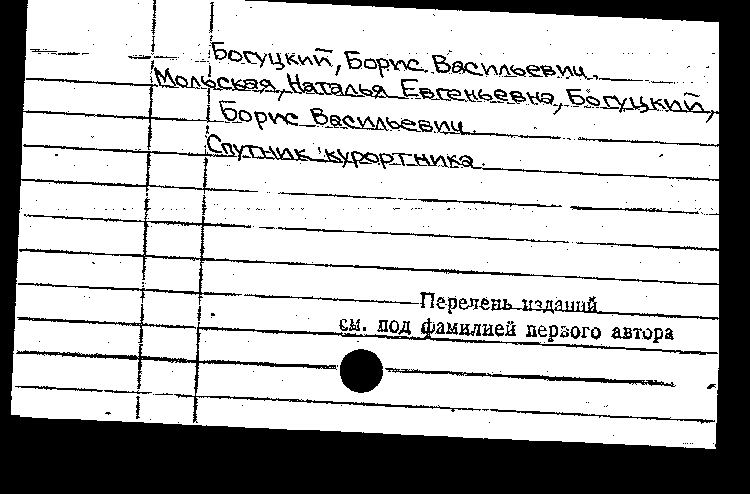 Богуцкий, Борис Васильевич.
Мольская, Наталья Евгеньевна, Богуцкий,
Борис Васильевич.
Спутник курортника.
Перечень изданий
см. под фамилией первого автора